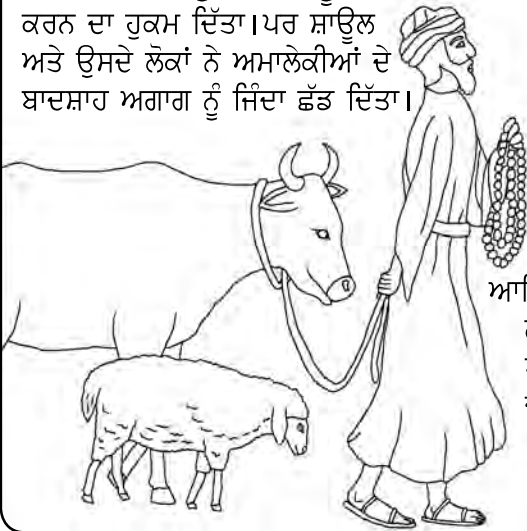 ਕਰਨ ਦਾ ਹੁਕਮ ਦਿੱਤਾ।ਪਰ ਸ਼ਾਊਲ
ਅਤੇ ਉਸਦੇ ਲੋਕਾਂ ਨੇ ਅਮਾਲੇਕੀਆਂ ਦੇ
ਬਾਦਸ਼ਾਹ ਅਗਾਗ ਨੂੰ ਜਿੰਦਾ ਛੱਡ ਦਿੱਤਾ।